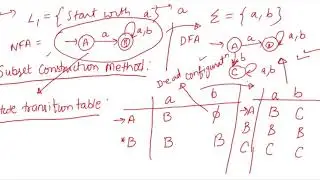 → L₁ = { Start with a } Σ = { a, b }
NFA = → A a B a, b
DFA → A a B a, b
b C a, b
Subset Construction Method:
Dead configuration
state transition table:
a b
→ A B ϕ
* B B B
a b
→ A B C
B B B
C C C